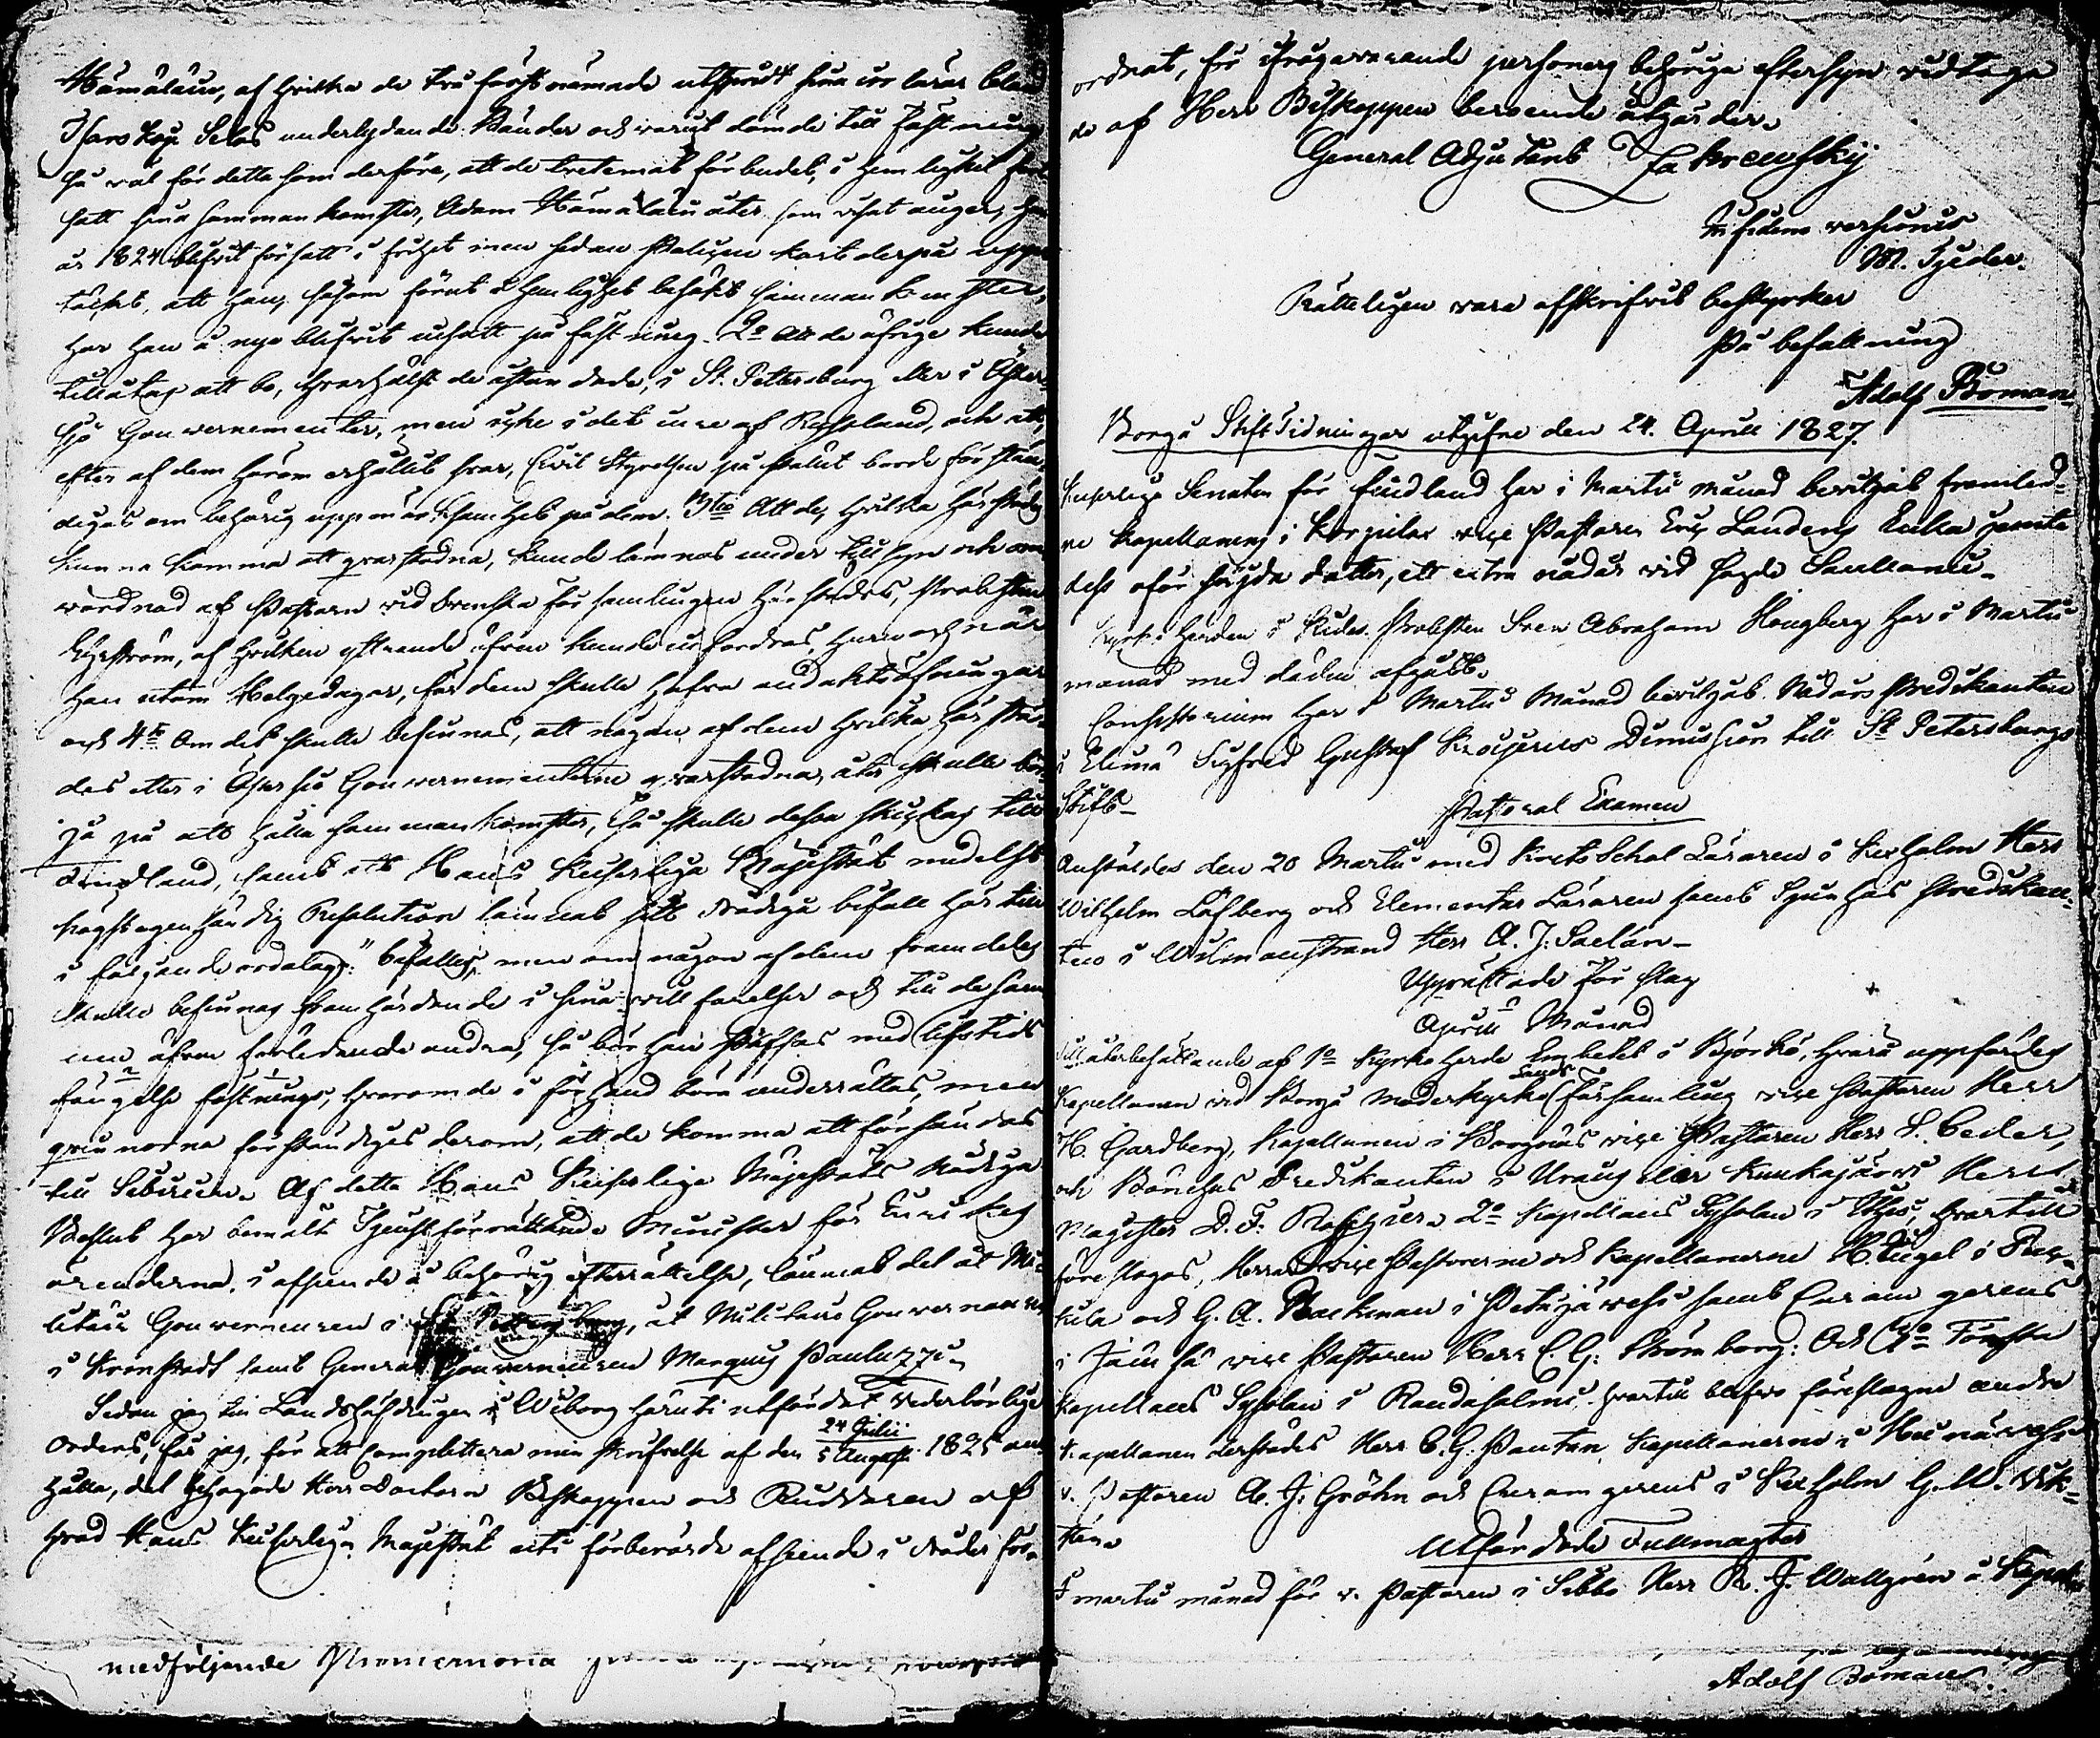 Hämäläin, af hvilka de två först nämnde utspridt sina irr läror bland
Zarskoje Selos underlydande Bönder och varit dömde till Fästning
så väl för detta som derföre, att de tvertemot förbudet, i hemlighet fort
satt sina sammankomster, Adam Hämäläin åter som
år 1824 blifvit försatt i frihet men sedan Polisen kort derpå upp
täckt, att han, såsom förut i hemlighet besökt sammankomster,
har han å nyo blifvit insatt på fästning. 2o att de öfrige kunde
tillåtas att bo, hvarhälst de åstundade, i St. Petersburg eller i Öster
sjö Gouvernementer, men icke i det inre af Ryssland, och att,
efter af dem härom erhållit svar, Civil Styrelsen på stället borde förstän
digas om behörig uppmärksamhet på dem. 3tio Att de, hvilka härstädes
kunna komma att qvarstadna, kunde lämnas under tillsyn och om
vårdnad af Pastorn vid Svenska församlingen härstädes, Probsten
Ehrström, af hvilken yttrande äfven kunde infordras, huru och när
han utom Helgedagar, för dem skulle hafva andaktsöfningar
och 4to Om det skulle befinnas, att någon af dem hvilka härstä
des eller i Östersjö Gouvernementerne qvarstadna, åter skulle bör
ja på att hålla sammankomster, så skulle dessa skickas till
Finland, samt att Hans Kejserliga Majestät medelst
högst egenhändig Resolution lämnat sitt Nådiga bifall härtill
i följande ordalag: "befalles, men om någon af dem framdeles
skulle befinnas framhärdande i sina villfarelser och till desam
ma äfven förledande andra, så bör han straffas med lifstids
fängelse fästnings, hvarom de i förhand böra underrättas, men
qvinnorna förständigas derom, att de komma att försändas
till Sibirien. Af detta Hans Kejserliga Majestäts Nådiga
Beslut har bemält Tjenstförrättande Minister för Inrikes
ärenderna, i afseende å behörig efterrättelse, lämnat del åt Mi
litäir Gouverneuren i St. Petersburg, åt Militaire Gouverneuren
i Kronstadt samt General Gouverneuren Marquis Pauluzzi.
Sedan jag till Landshöfdingen i Wiborg häruti utfärdat vederbörlige
Orders, får jag, för att complettera min skrifvelse af den 24 Julii / 5 Augusti 1825 an
hålla, det behagade Herr Doctorn Biskoppen och Riddaren af
hvad Hans Kejserliga Majestät uti förberörde afseende i Nåder för-
medföljande
ordnat, för ifrågavarande personers behöriga eftersyn vidtaga
de af Herr Biskoppen beroende åtgärder.
General Adjutant Zakrewskij
In fidem versionis
M. Tjeder.
Rätteligen vara afskrifvit bestyrker
På befallning
Adolf Boman.
Borgå Stifts Tidningar utgifne den 24. April 1827.
Kejserliga Senaten för Finland har i Martii månad beviljat framled-
ne Kapellanens i Korpilax vice Pastoren Eric Landens Enka jemte
dess oförsörjda dotter, ett extra nådår vid sagde Sacellanie.
Kyrkoherden i Prosten Sven Abraham Hougberg har i Martii
månad med döden afgått.
Consistorium har i Martii Månad beviljat Nådårs Predikanten
i Elimä Sigfred Gustaf Krogerus Dimission till St Petersburgs
Stift.
Pastoral Examen
Anställdes den 20 Martii med Krets Schol Läraren i Kexholm Herr
Wilhelm Löfberg och Elementar Läraren samt Spinhus Predikan-
ten i Wilmanstrand Herr A. J. Saelan.
Upprättade Förslag
i Aprill Månad
Till återbesättande af 1o Kyrkoherde Embetet i Björkö, hvarå uppfördes
Kapellanen vid Borgå Moderkyrko Lands Församling vice Pastoren Herr
H. Gardberg, Kapellanen i Borgnäs vice Pastoren Herr S. Ceder,
och Bönehus Predikanten i Haukajärvi Herr
Magister D. F. 2o Kapellans Sysslan i Uhus, hvartill
föreslogos, Herrar vice Pastorerne och Kapellanerne H. Eugel i Puu-
kula och G. A. Backman i Petäjävesi samt Curam gerens
i Jämsä vice Pastoren Herr C. G. Strömborg: Och 3o Förste
Kapellans Sysslan i Randasalmi, hvartill blefvo föreslagne andre
Kapellanen derstädes Herr C. G. Pontan, Kapellanerne i Heinävesi
v. Pastoren A. J. Gröhn och Curam gerens i Kexholm G. W. Wik-
stén.
Utfärdade Fullmagter
I martii månad för v. Pastoren i Sibbo Herr R. J. Wallgrén å Kapel
Adolf Boman